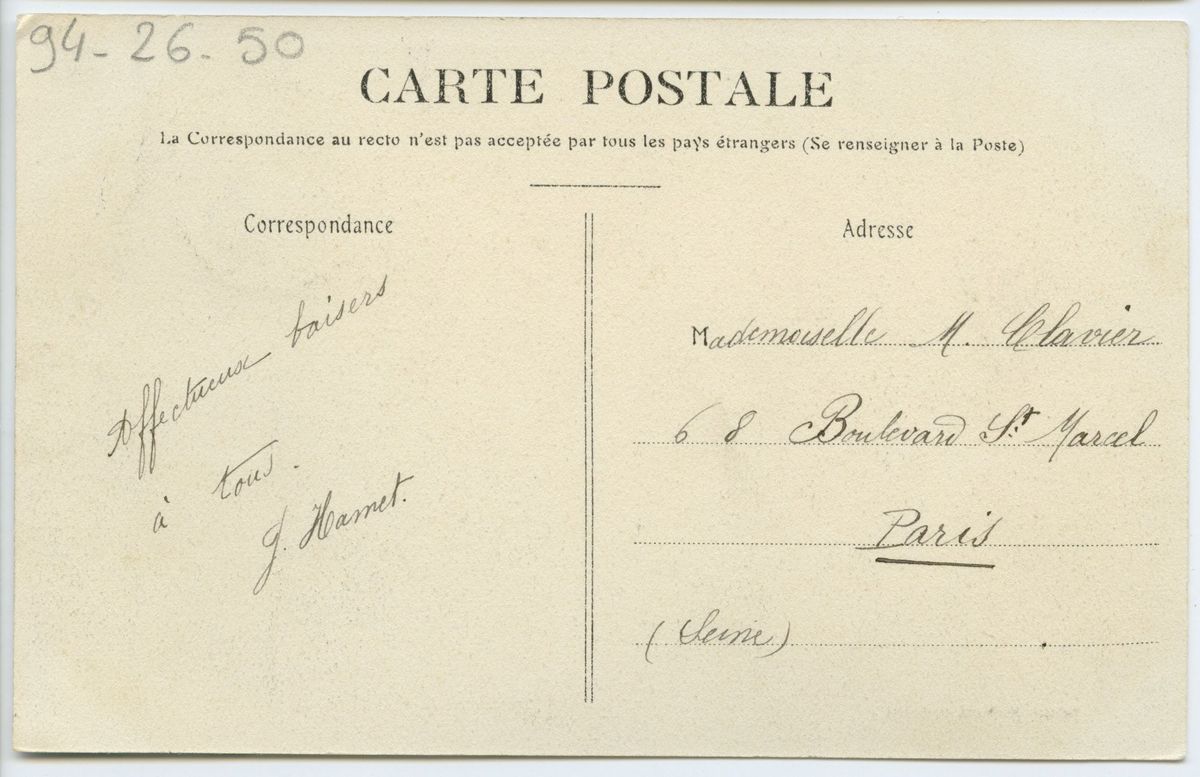 94-26-50
CARTE POSTALE
La Correspondance au recto n'est pas acceptée par tous les pays étrangers (Se renseigner à la Poste)
Correspondance
Affectueux baisers
à tous.
J. Hamet.
Adresse
Mademoiselle M. Clavier
68 Boulevard St. Marcel
Paris
(Seine)